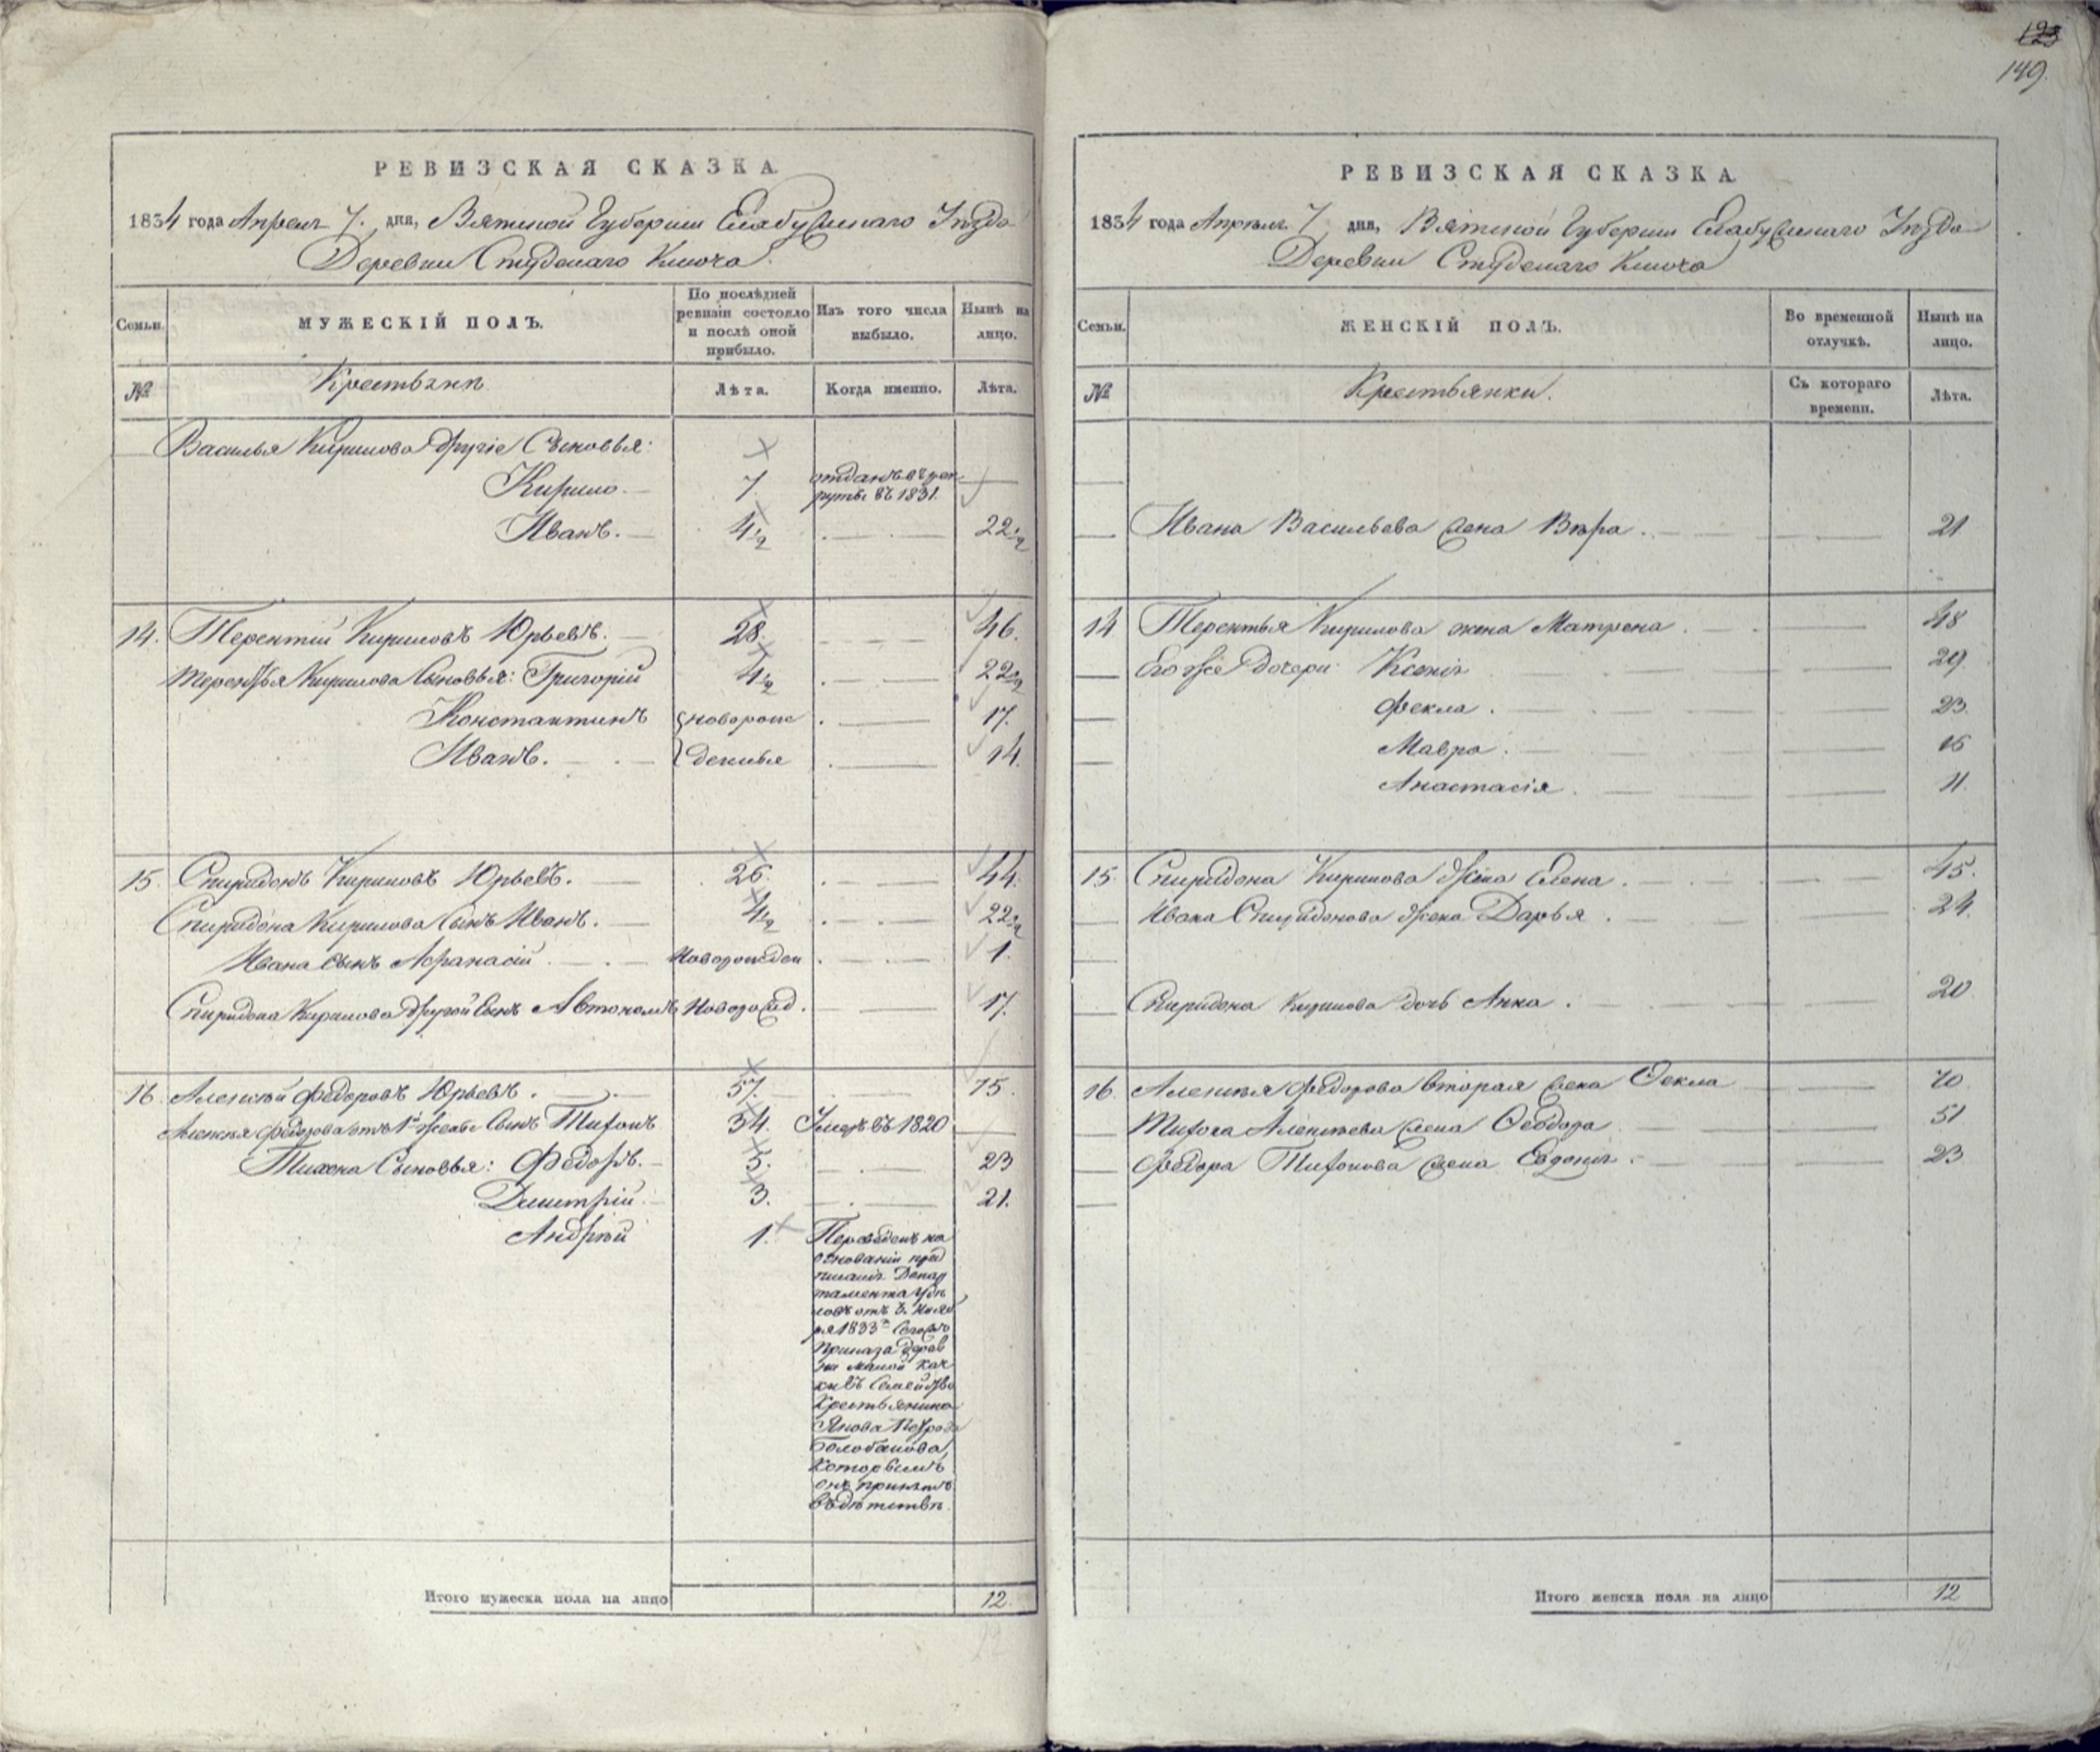 123
149.
РЕВИЗСКАЯ СКАЗКА.
1834 года Апреля 7. дня, Вятской Губернии Елабужскаго Уѣзда
Деревни Студенаго Ключа.
Семьи.
МУЖЕСКІЙ ПОЛЪ.
По послѣдней ревизіи состояло и послѣ оной прибыло.
Изъ того числа выбыло.
Нынѣ на лицо.
№
Крестьянъ
Лѣта.
Когда именно.
Лѣта.
Василья Кирилова другіе Сыновья:
Кирило. 7. отданъ въ рек
руты въ 1831.
Иванъ. 4 1/2 22 1/2
14. Терентій Кириловъ Юрьевъ. 28. 46.
Терентья Кирилова Сыновья: Григорій 4 1/2 22 1/2
Константинъ новорож 17.
Иванъ. денныя 14.
15. Спиридонъ Кириловъ Юрьевъ. 26. 44.
Спиридона Кирилова Сынъ Иванъ. 4 1/2 22 1/2
Ивана Сынъ Афанасій Новорожден 1.
Спиридона Кирилова другой Сынъ Автономъ Новорожд. 17.
16. Алексѣй Федоровъ Юрьевъ. 57. 75.
Алексѣя Федорова отъ 1й жены Сынъ Тихонъ 34. Умеръ въ 1820
Тихона Сыновья: Федоръ. 5. 23
Дмитрій. 3. 21.
Андрѣй 1. Переведенъ на
основаніи пред
писанія Депар
тамента Удѣ
ловъ отъ Нояб
ря 1833 г.
Приказа дерев
ни малой Кач
ки въ Семейство
Крестьянина
Якова Петрова
Голобокова,
которымъ
онъ принятъ
въ дѣтствѣ.
Итого мужеска пола на лицо 12.
РЕВИЗСКАЯ СКАЗКА
1834 года Апрѣля 7 дня, Вятской Губерніи Елабужскаго Уѣзда
Деревни Студенаго Ключа
Семьи.
ЖЕНСКІЙ ПОЛЪ.
Во временной отлучкѣ.
Нынѣ на лицо.
№
Крестьянки.
Съ котораго времени.
Лѣта.
Ивана Васильева жена Вѣра. 21
14 Терентья Кирилова жена Матрена 48
Его же дочери: Ксенія 29
Фекла. 23.
Мавра. 16
Анастасія. 11.
15. Спиридона Кирилова жена Елена. 45.
Ивана Спиридонова жена Дарья. 24.
Спиридона Кирилова дочь Анна. 20
16. Алексѣя Федорова вторая жена Ѳекла 70
Тихона Алексѣева жена Ѳеодора 51
Федора Тихонова жена Евдокія. 23
Итого женска пола на лицо 12